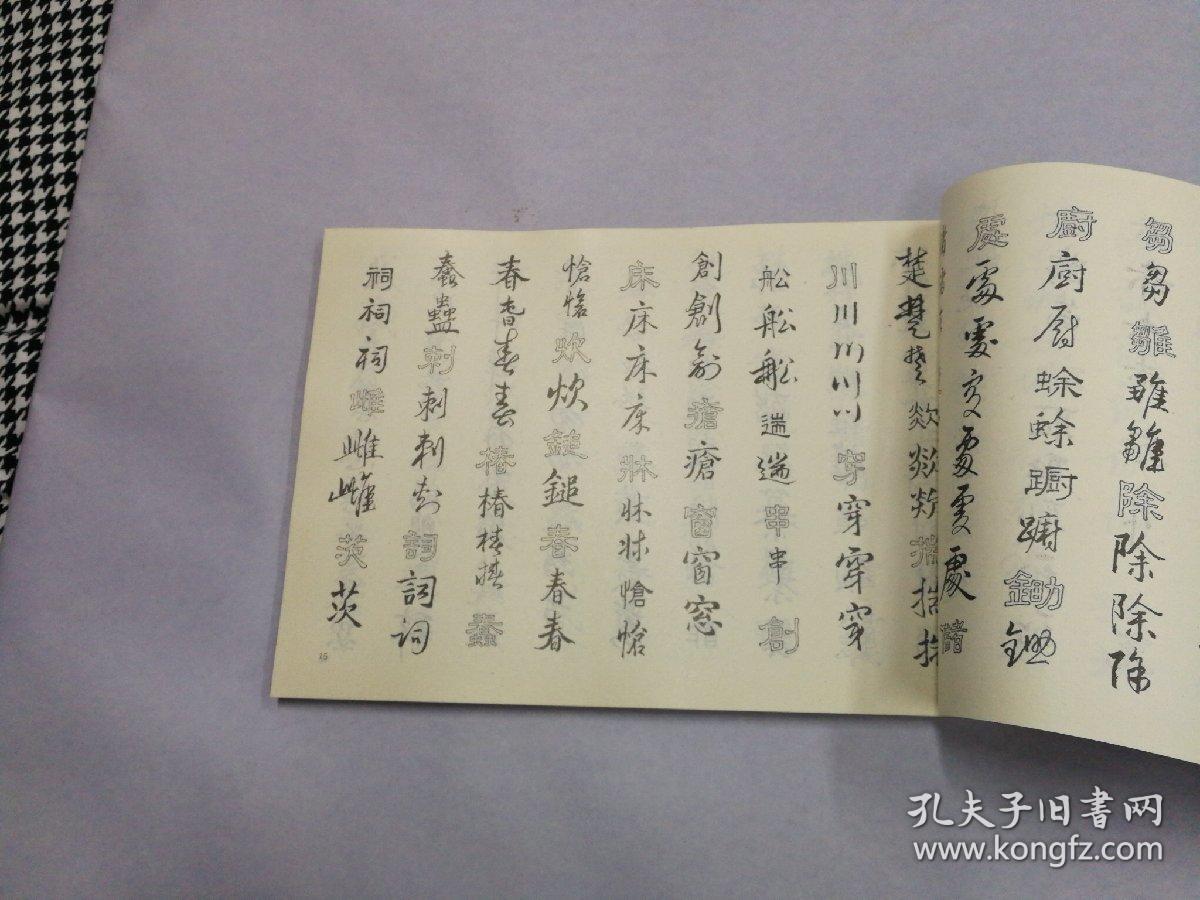 芻芻雛雛雛除除除除
廚廚厨蜍蜍蹰蹰鋤鋤
處處處處處處處
楚楚楚歘歘歘揣揣揣
川川川川川穿穿穿穿
船船船遄遄串串創
創創創瘡瘡窗窗窓
床床床床牀牀牀愴愴
愴愴炊炊鎚鎚春春春
春春春春椿椿椿椿蠢
蠢蠢刺刺刺刺詞詞詞
祠祠祠雌雌雌茨茨
16
孔夫子旧书网
www.kongfz.com